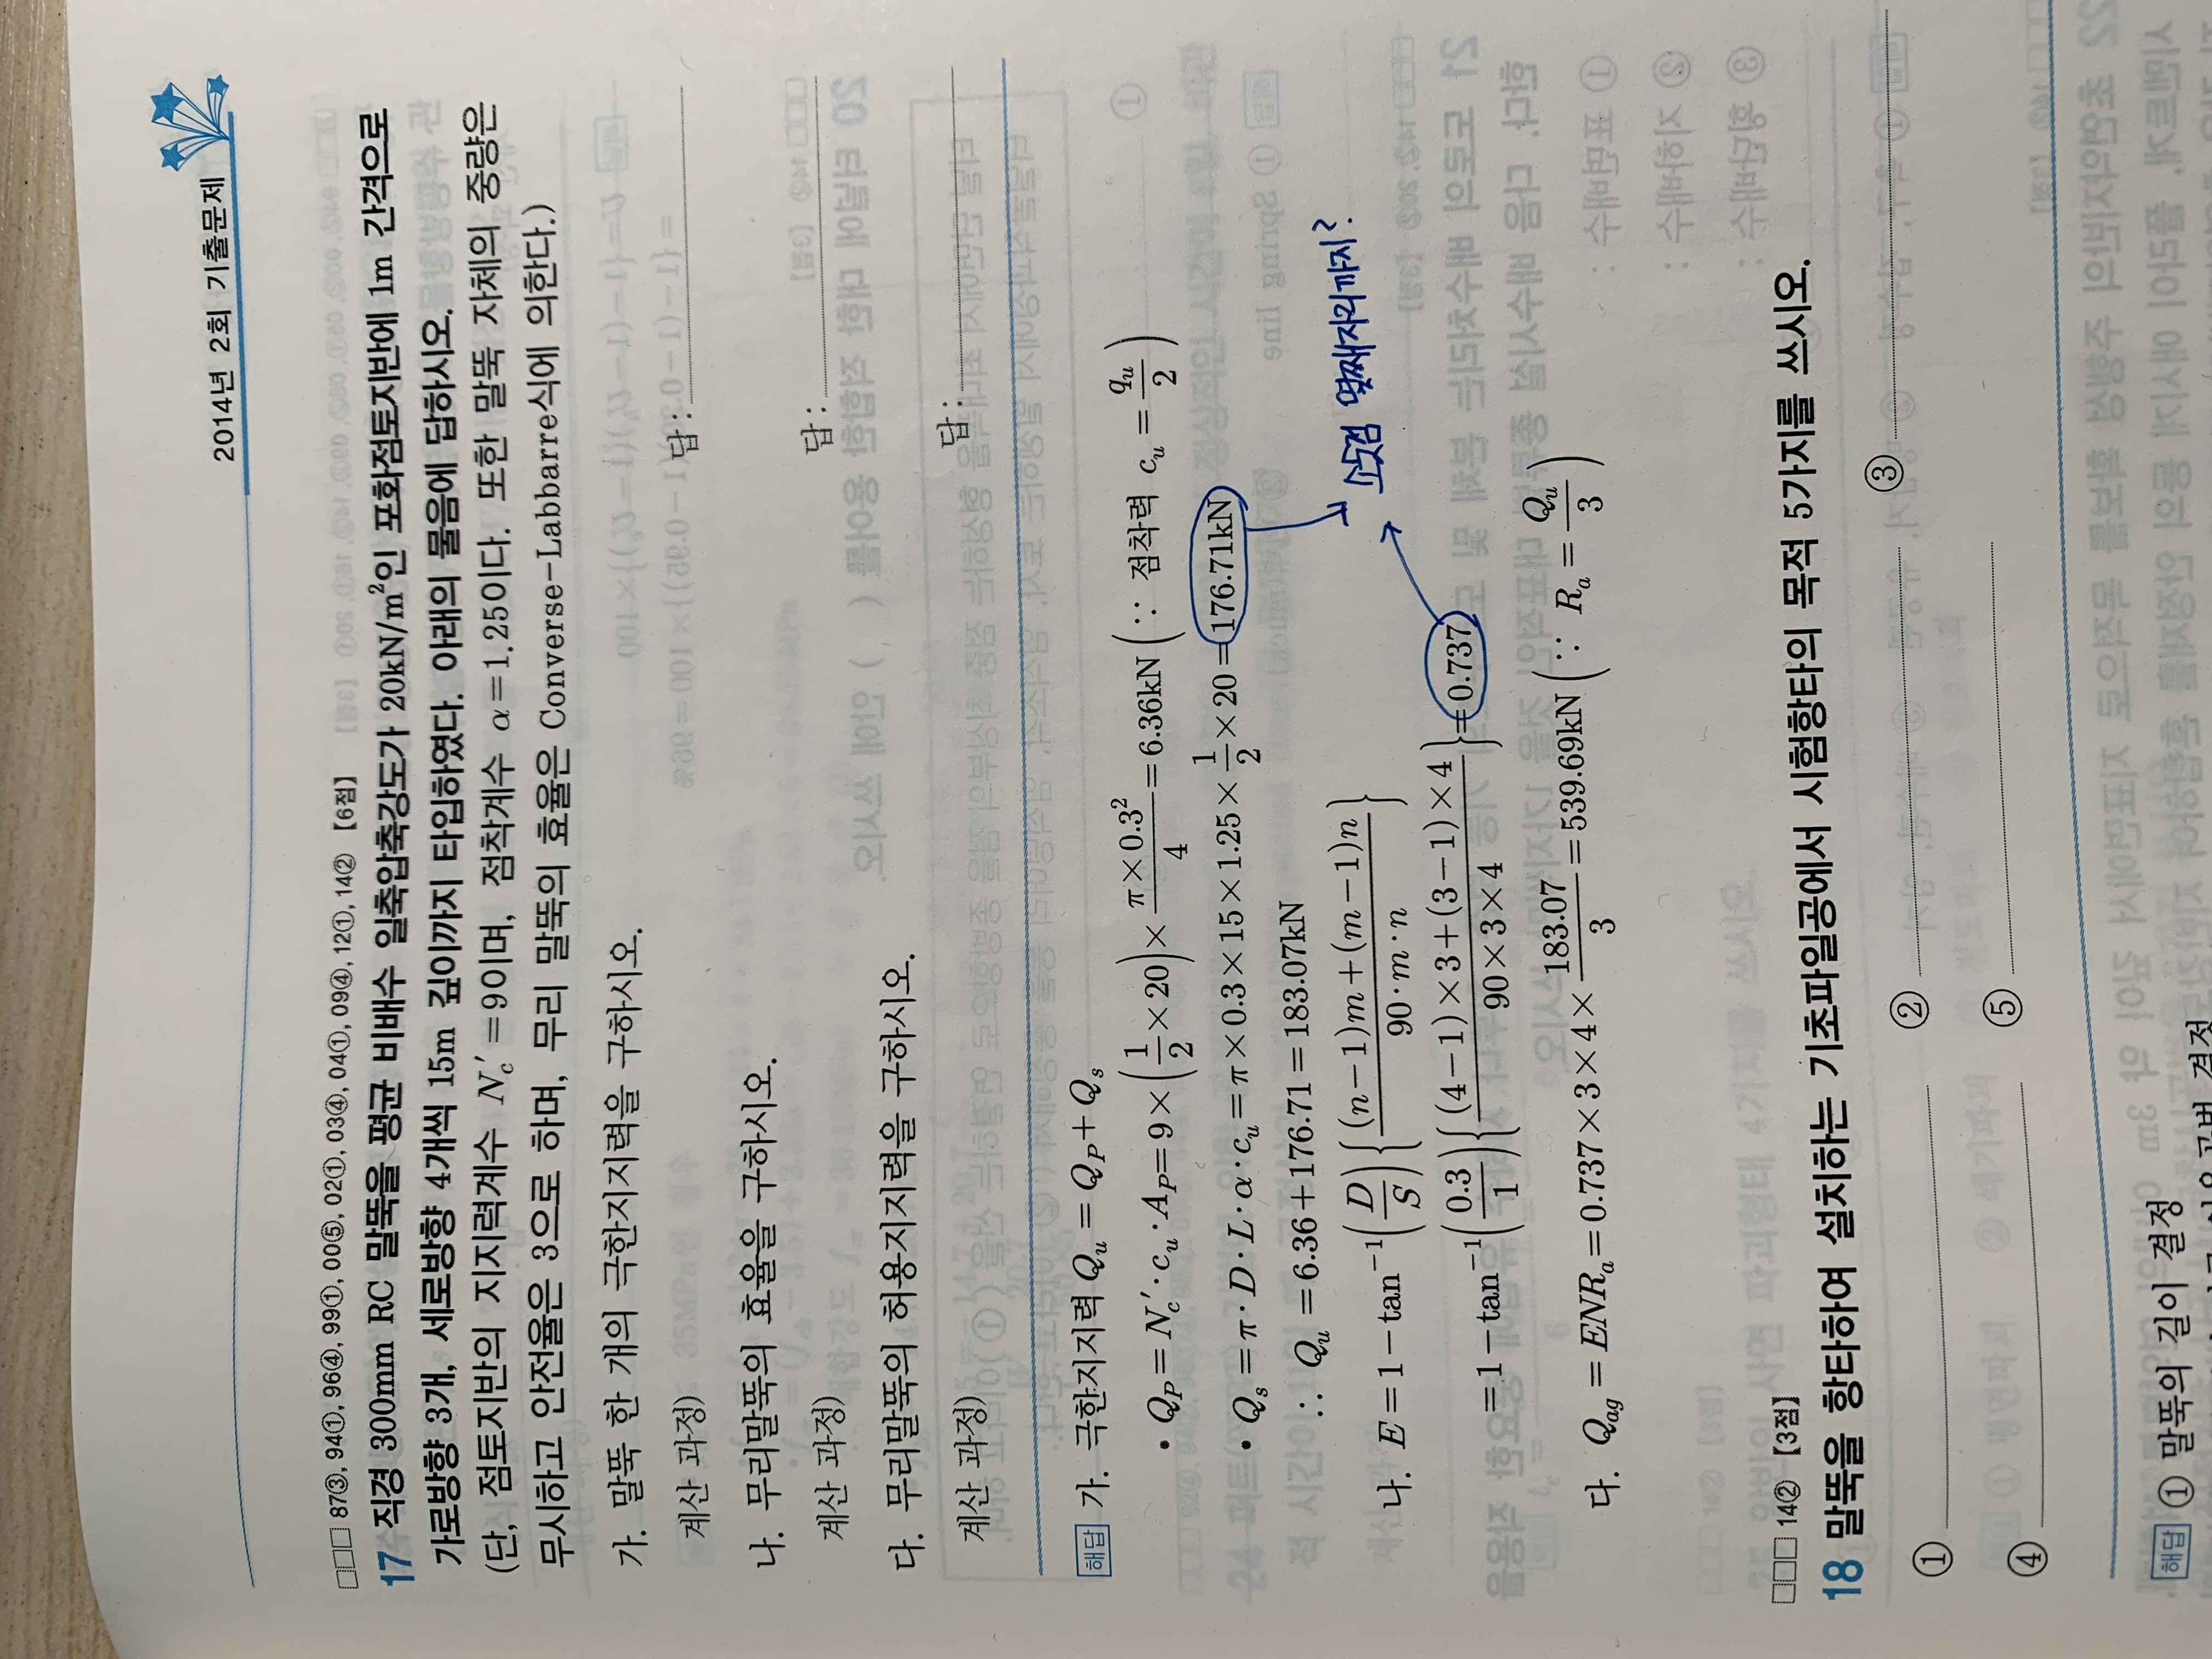 2014년 2회 기출문제
□□□ 87③, 94①, 96④, 99①, 00⑤, 02①, 03④, 04①, 09④, 12①, 14② 【6점】
17 직경 300mm RC 말뚝을 평균 비배수 일축압축강도가 20kN/m²인 포화점토지반에 1m 간격으로
가로방향 3개, 세로방향 4개씩 15m 깊이까지 타입하였다. 아래의 물음에 답하시오.
(단, 점토지반의 지지력계수 N_c′=9이며, 점착계수 α=1.25이다. 또한 말뚝 자체의 중량은
무시하고 안전율은 3으로 하며, 무리 말뚝의 효율은 Converse-Labbarre식에 의한다.)
가. 말뚝 한 개의 극한지지력을 구하시오.
계산 과정) 답:
나. 무리말뚝의 효율을 구하시오.
계산 과정) 답:
다. 무리말뚝의 허용지지력을 구하시오.
계산 과정) 답:
해답 가. 극한지지력 Q_u=Q_P+Q_s
• Q_P=N_c′·c_u·A_P=9×(1/2×20)×π×0.3²/4=6.36kN (∵ 점착력 c_u=q_u/2)
• Q_s=π·D·L·α·c_u=π×0.3×15×1.25×1/2×20=176.71kN
∴ Q_u=6.36+176.71=183.07kN
소숫점 몇째자리까지?
나. E=1-tan⁻¹(D/S){(n-1)m+(m-1)n/90·m·n}
=1-tan⁻¹(0.3/1){(4-1)×3+(3-1)×4/90×3×4}=0.737
다. Q_ag=ENR_a=0.737×3×4×183.07/3=539.69kN (∵ R_a=Q_u/3)
□□□ 14② 【3점】
18 말뚝을 항타하여 설치하는 기초파일공에서 시험항타의 목적 5가지를 쓰시오.
① ② ③
④ ⑤
해답 ① 말뚝의 길이 결정